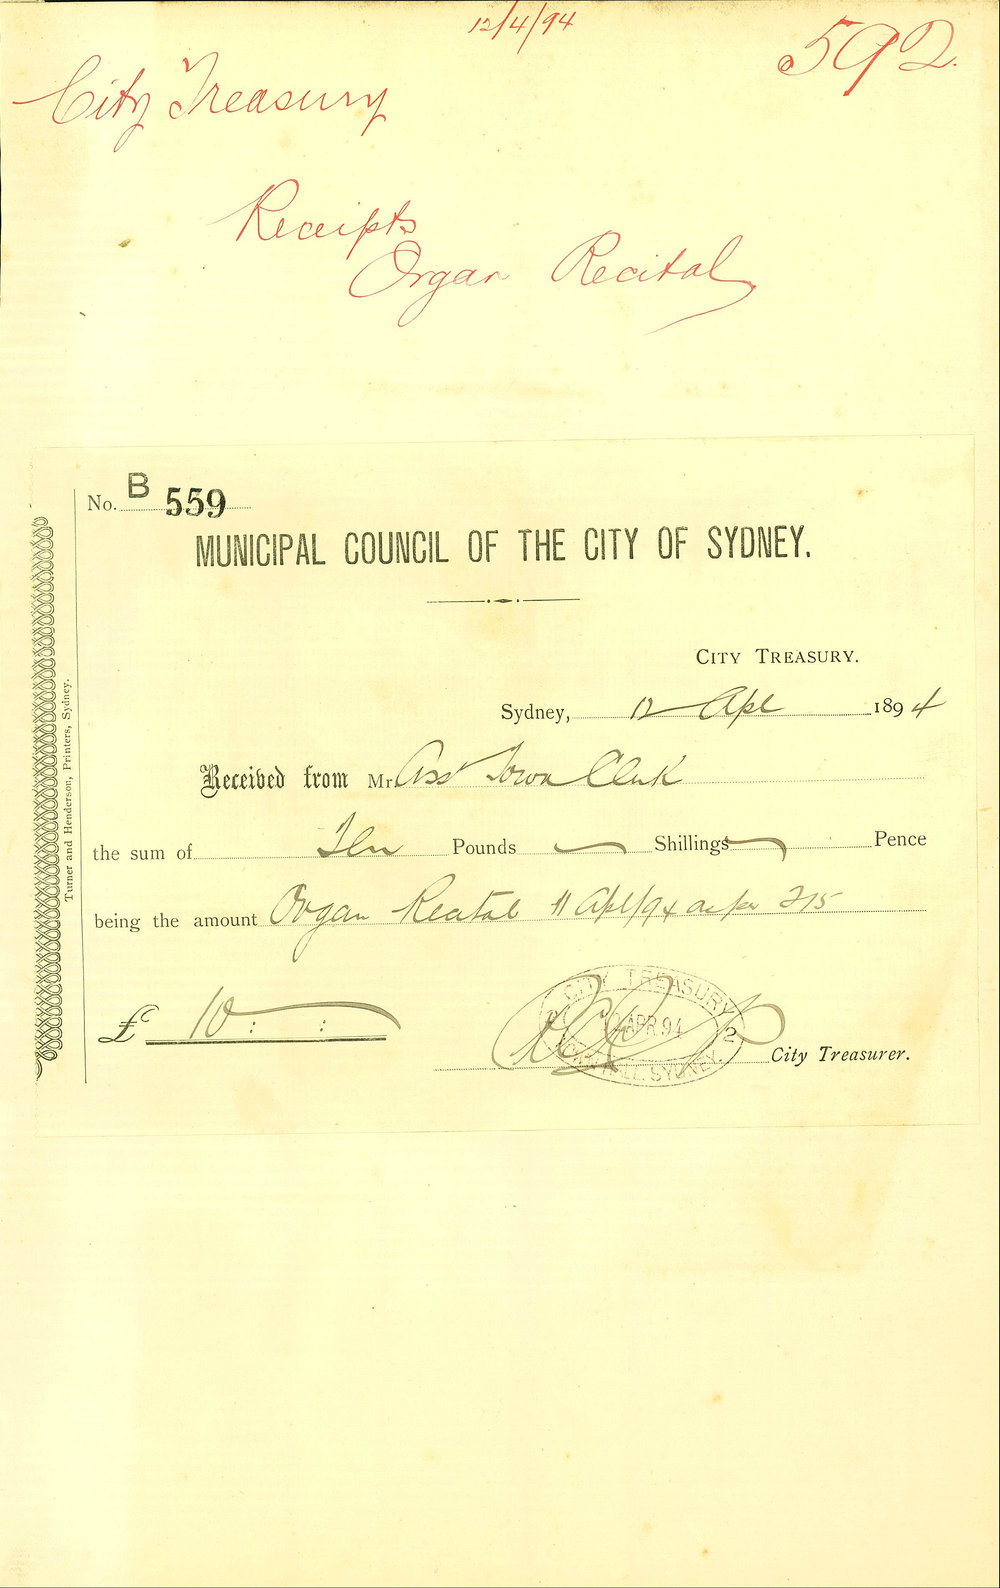 12/4/94
592.
City Treasury
Receipts
Organ Recital
No. B 559
MUNICIPAL COUNCIL OF THE CITY OF SYDNEY.
CITY TREASURY.
Sydney, 12 Apl 1894
Received from Mr Asst Town Clerk
the sum of Ten Pounds — Shillings — Pence
being the amount Organ Recital 11 Apl/94 as per 215
£ 10 : :
CITY TREASURY
APR 94
2
TOWN HALL. SYDNEY.
City Treasurer.
Turner and Henderson, Printers, Sydney.